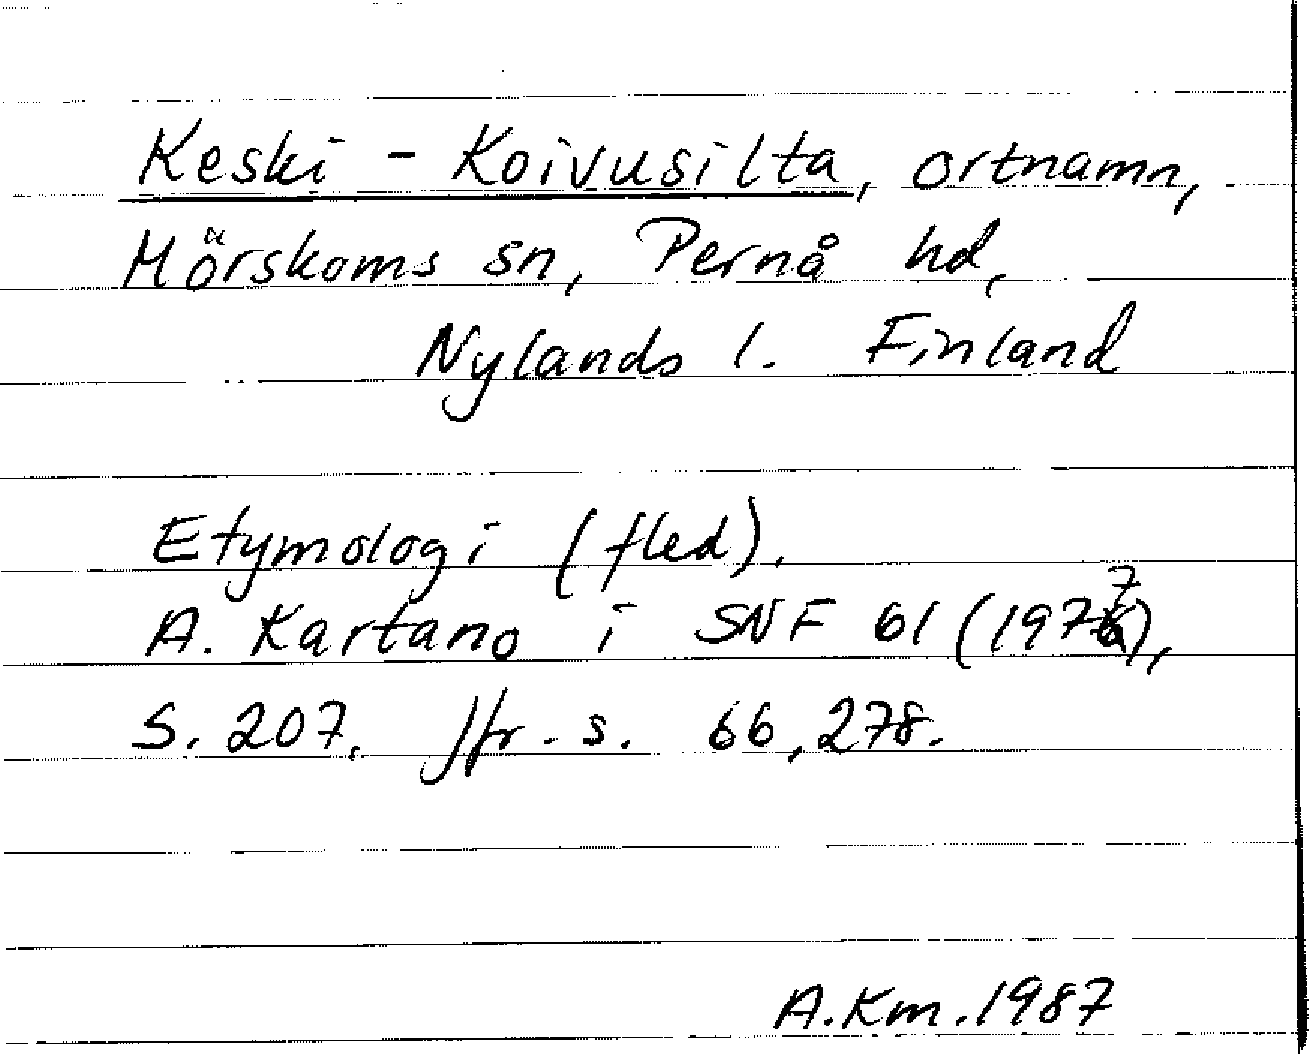 Keski - Koivusilta, ortnamn,
Mörskoms sn, Pernå hd,
Nylands l. Finland
Etymologi (fled).
A. Kartano i SNF 61 (1977),
S. 207. Jfr. s. 66, 278.
A.Km. 1987